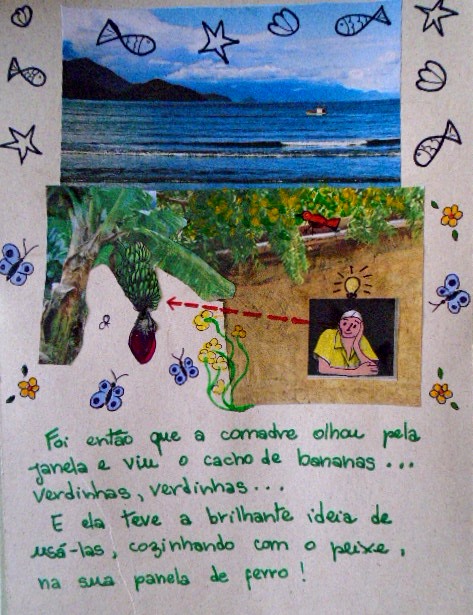 Foi então que a comadre olhou pela
janela e viu o cacho de bananas...
verdinhas, verdinhas...
E ela teve a brilhante ideia de
usá-las, cozinhando com o peixe,
na sua panela de ferro!